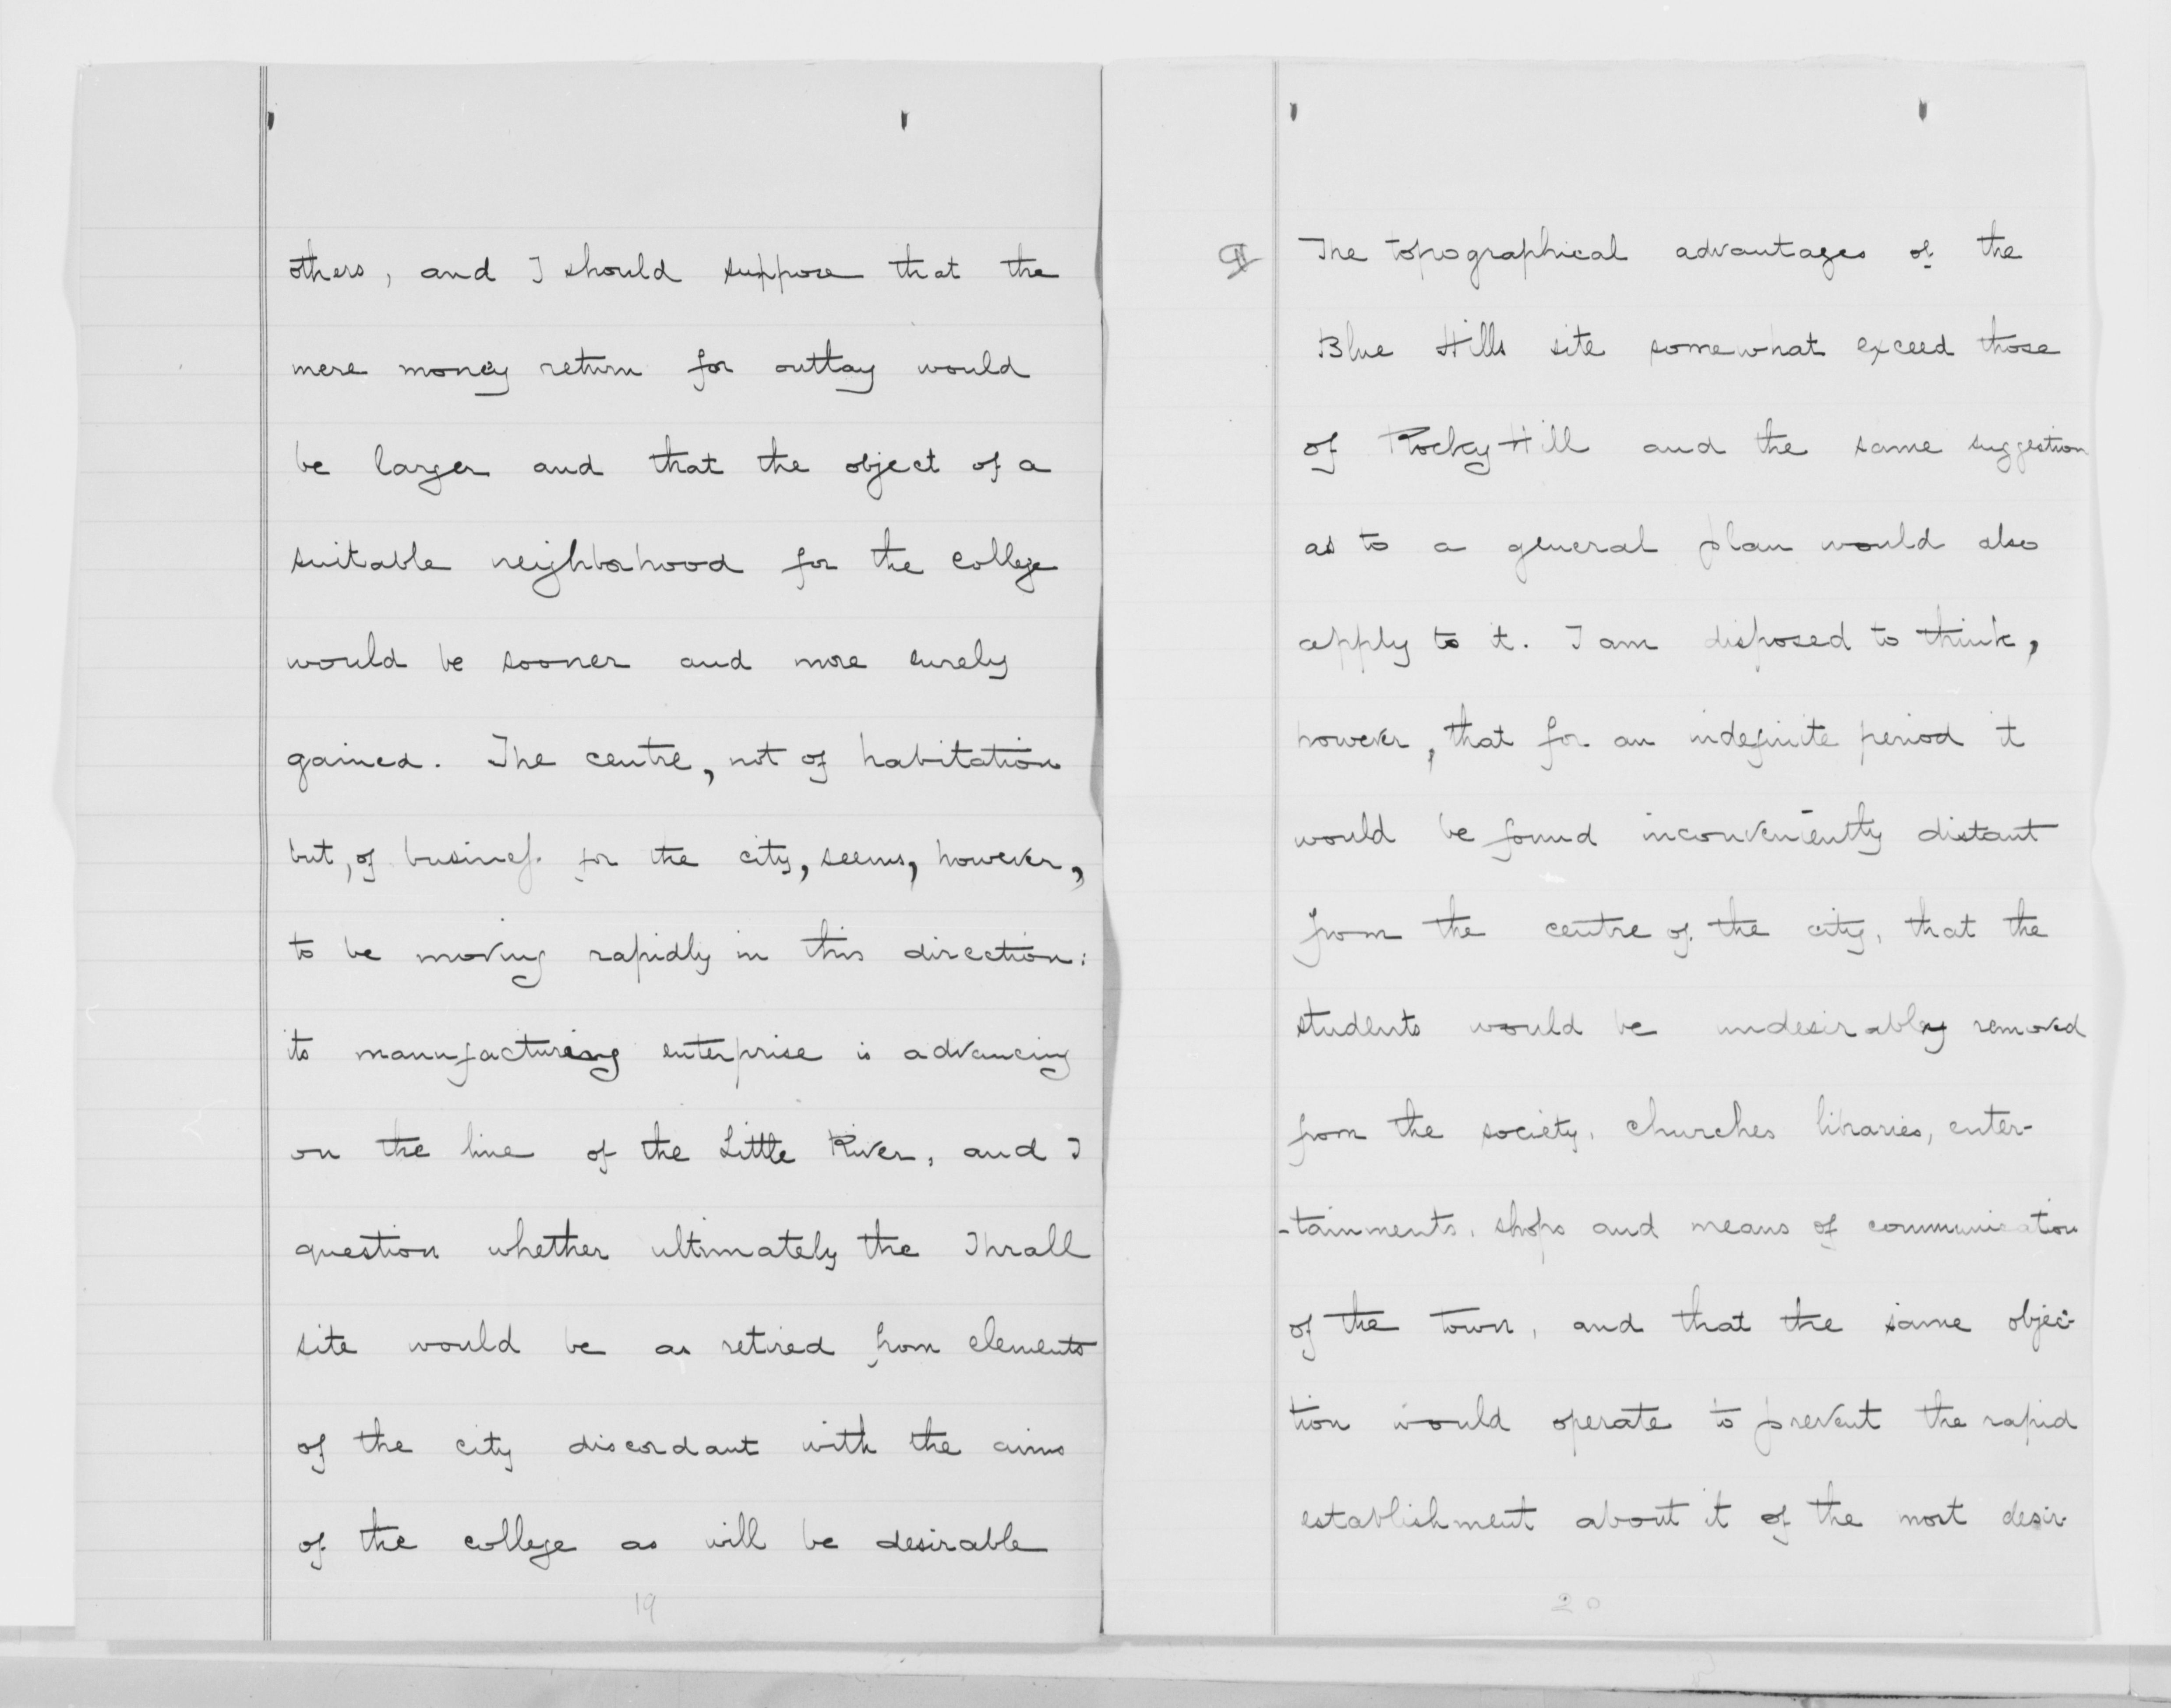 others, and I should suppose that the
mere money return for outlay would
be larger and that the object of a
suitable neighborhood for the college
would be sooner and more surely
gained. The centre, not of habitation
but, of business for the city, seems, however,
to be moving rapidly in this direction:
its manufacturing enterprise is advancing
on the line of the Little River, and I
question whether ultimately the Thrall
site would be as retired from elements
of the city discordant with the aims
of the college as will be desirable
19
¶ The topographical advantages of the
Blue Hills site somewhat exceed those
of Rocky Hill and the same suggestion
as to a general plan would also
apply to it. I am disposed to think,
however, that for an indefinite period it
would be found inconveniently distant
from the centre of the city, that the
students would be undesirably removed
from the society, churches libraries, enter-
-tainments, shops and means of communication
of the town, and that the same objec-
tion would operate to prevent the rapid
establishment about it of the most desir-
20